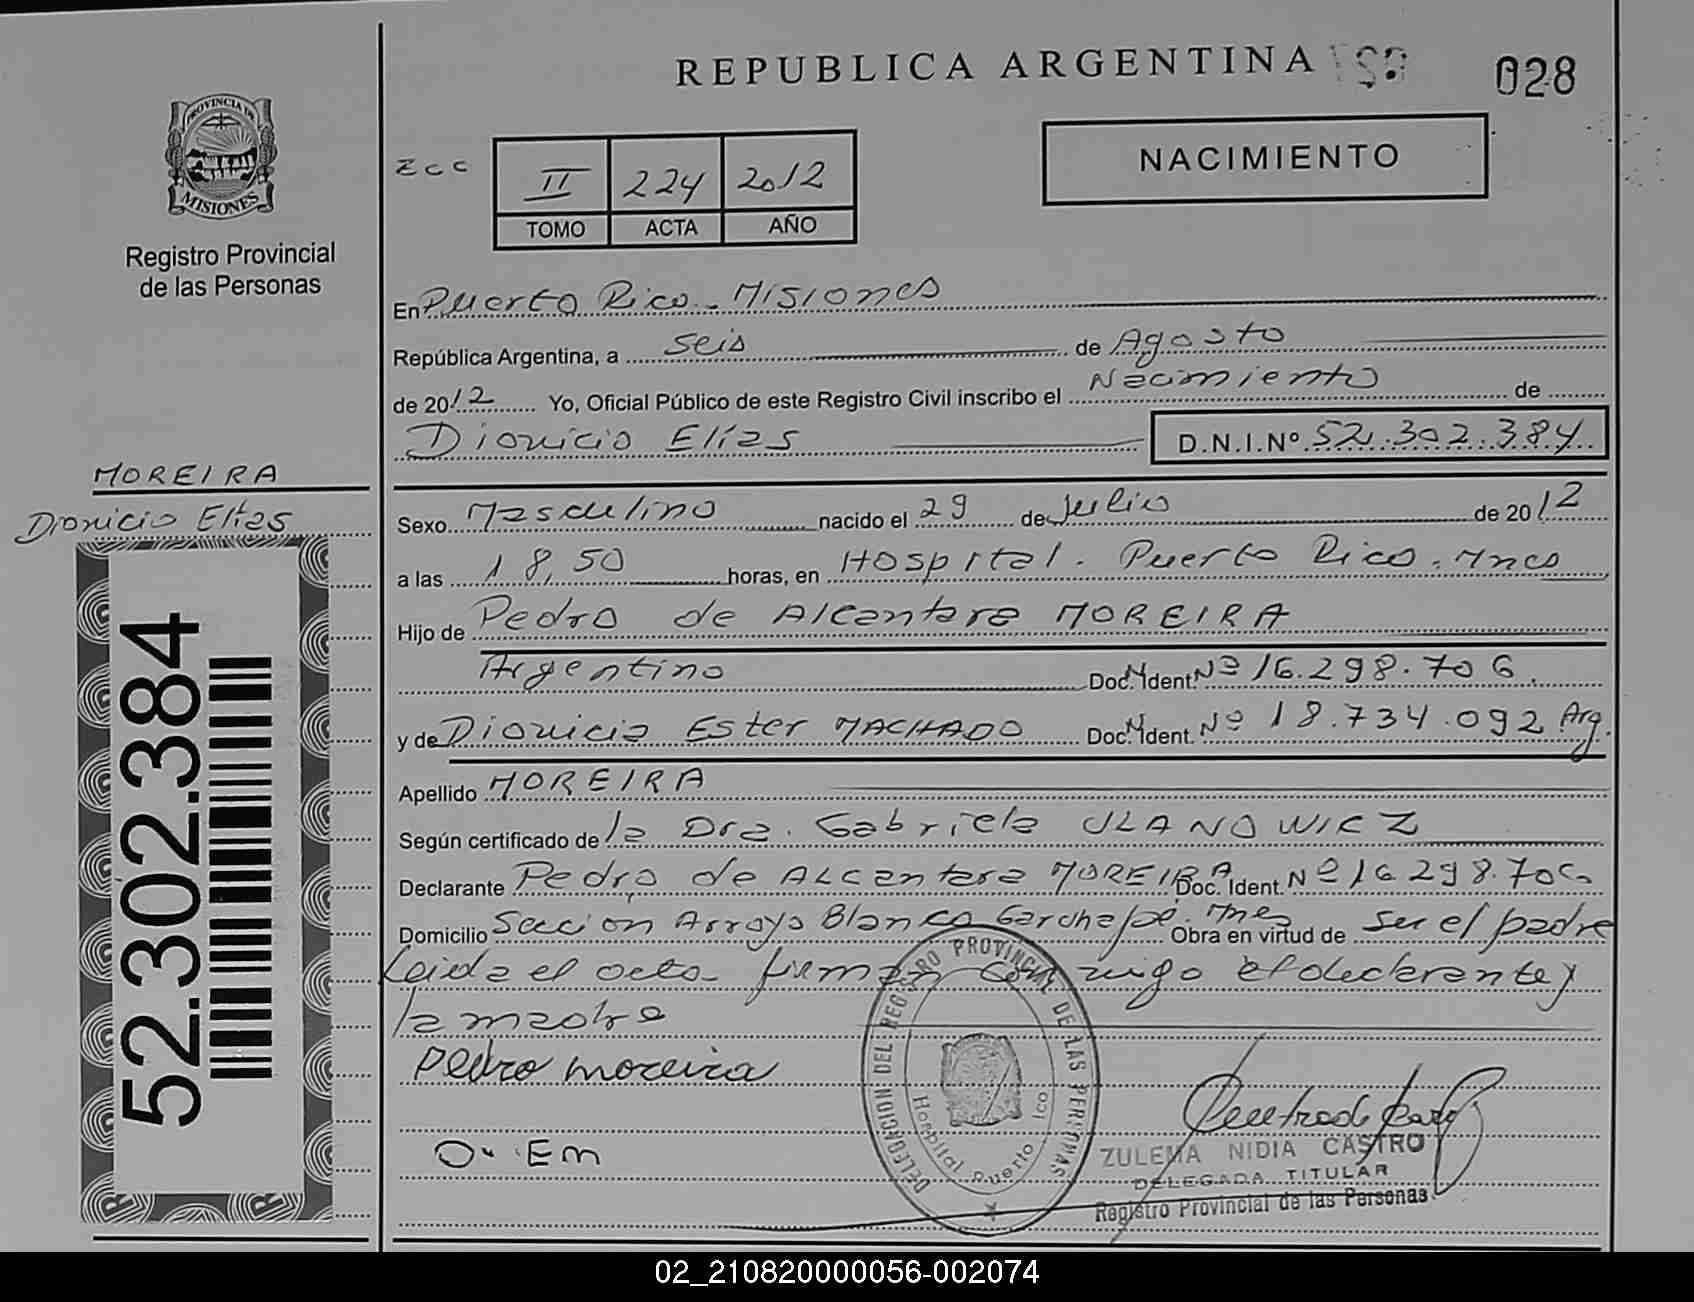 REPUBLICA ARGENTINA
028
PROVINCIA DE
MISIONES
Registro Provincial
de las Personas
zcc
II 224 2012
TOMO ACTA AÑO
NACIMIENTO
En Puerto Rico - Misiones
República Argentina, a seis de Agosto
de 2012 Yo, Oficial Público de este Registro Civil inscribo el Nacimiento de
Dionicio Elías D.N.I.Nº 52.302.384
MOREIRA
Dionicio Elías
52.302.384
Sexo Masculino nacido el 29 de Julio de 2012
a las 18,50 horas, en Hospital. Puerto Rico. Mnes
Hijo de Pedro de Alcantara MOREIRA
Argentino Doc. Ident. M Nº 16.298.706.
y de Dionicia Ester MACHADO Doc. Ident. M Nº 18.734.092 Arg.
Apellido MOREIRA
Según certificado de la Dra. Gabriela ULANOWICZ
Declarante Pedro de ALcantara MOREIRA Doc. Ident. Nº 16.298.706
Domicilio Sección Arroyo Blanco Garuhapé. Mnes Obra en virtud de ser el padre
Leida el acta firman conmigo el declarante y
la madre
Pedro moreira
D. Em
DELEGACION DEL REGISTRO PROVINCIAL DE LAS PERSONAS
Hospital Puerto Rico
ZULEMA NIDIA CASTRO
DELEGADA TITULAR
Registro Provincial de las Personas
02_210820000056-002074